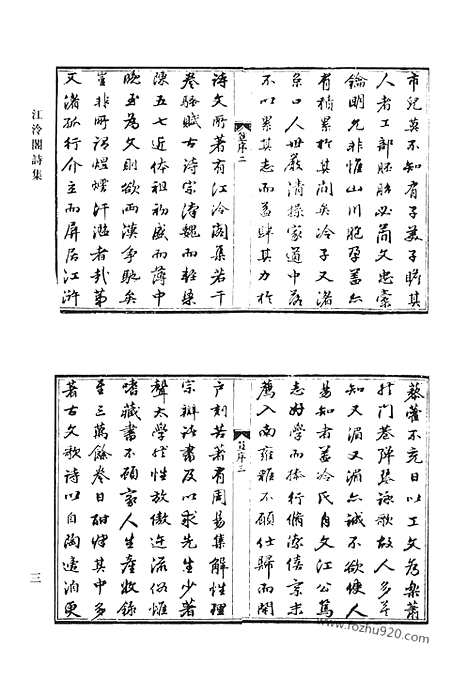 江泠閣詩集
市兒莫不知有子美子瞻其
人者工部胚胎必簡文忠橐
鑰明允非惟山川胞孕蓋亦
有積累於其間矣冷子又湄
京口人世嚴清操家道中落
不以累其志而益肆其力於
詩文所著有江泠閣集若干
卷騷賦古詩宗漢魏而雜梁
陳五七近体祖初盛而薄中
晚至為文則欲兩漢爭馳矣
豈非所謂熠燿汗瀾者哉第
又渚孤行介立而屏居江滸
序二
藜藿不充日以工文為樂蕭
於門巷陣張詠歌故人多不
知又湄又湄亦誠不欲使人
易知者蓋冷氏自文江公篤
志好學而操行脩潔僖宗末
薦入南雍雅不願仕歸而閉
戶刻苦著有周易集解性理
宗辨諸書及以求先生少著
聲太學然性放傲迕流俗惟
嗜藏書不顧家人生產收錄
至三萬餘卷日酣肆其中多
著古文歌詩以自陶遠洎更
序三
三
www.fozhu920.com